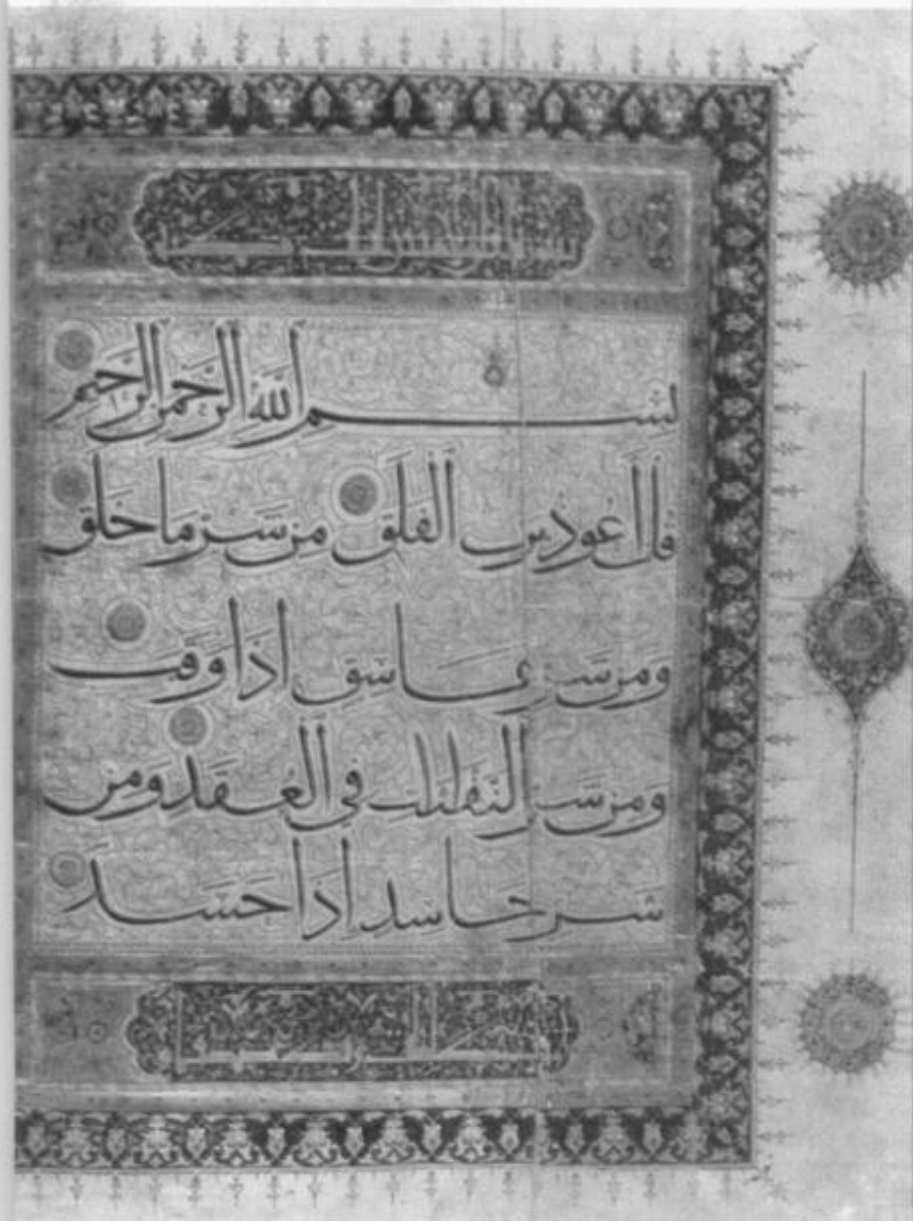 بسم الله الرحمن الرحيم
قل أعوذ برب الفلق من شر ما خلق
ومن شر غاسق اذا وقب
ومن شر النفاثات في العقد ومن
شر حاسد اذا حسد